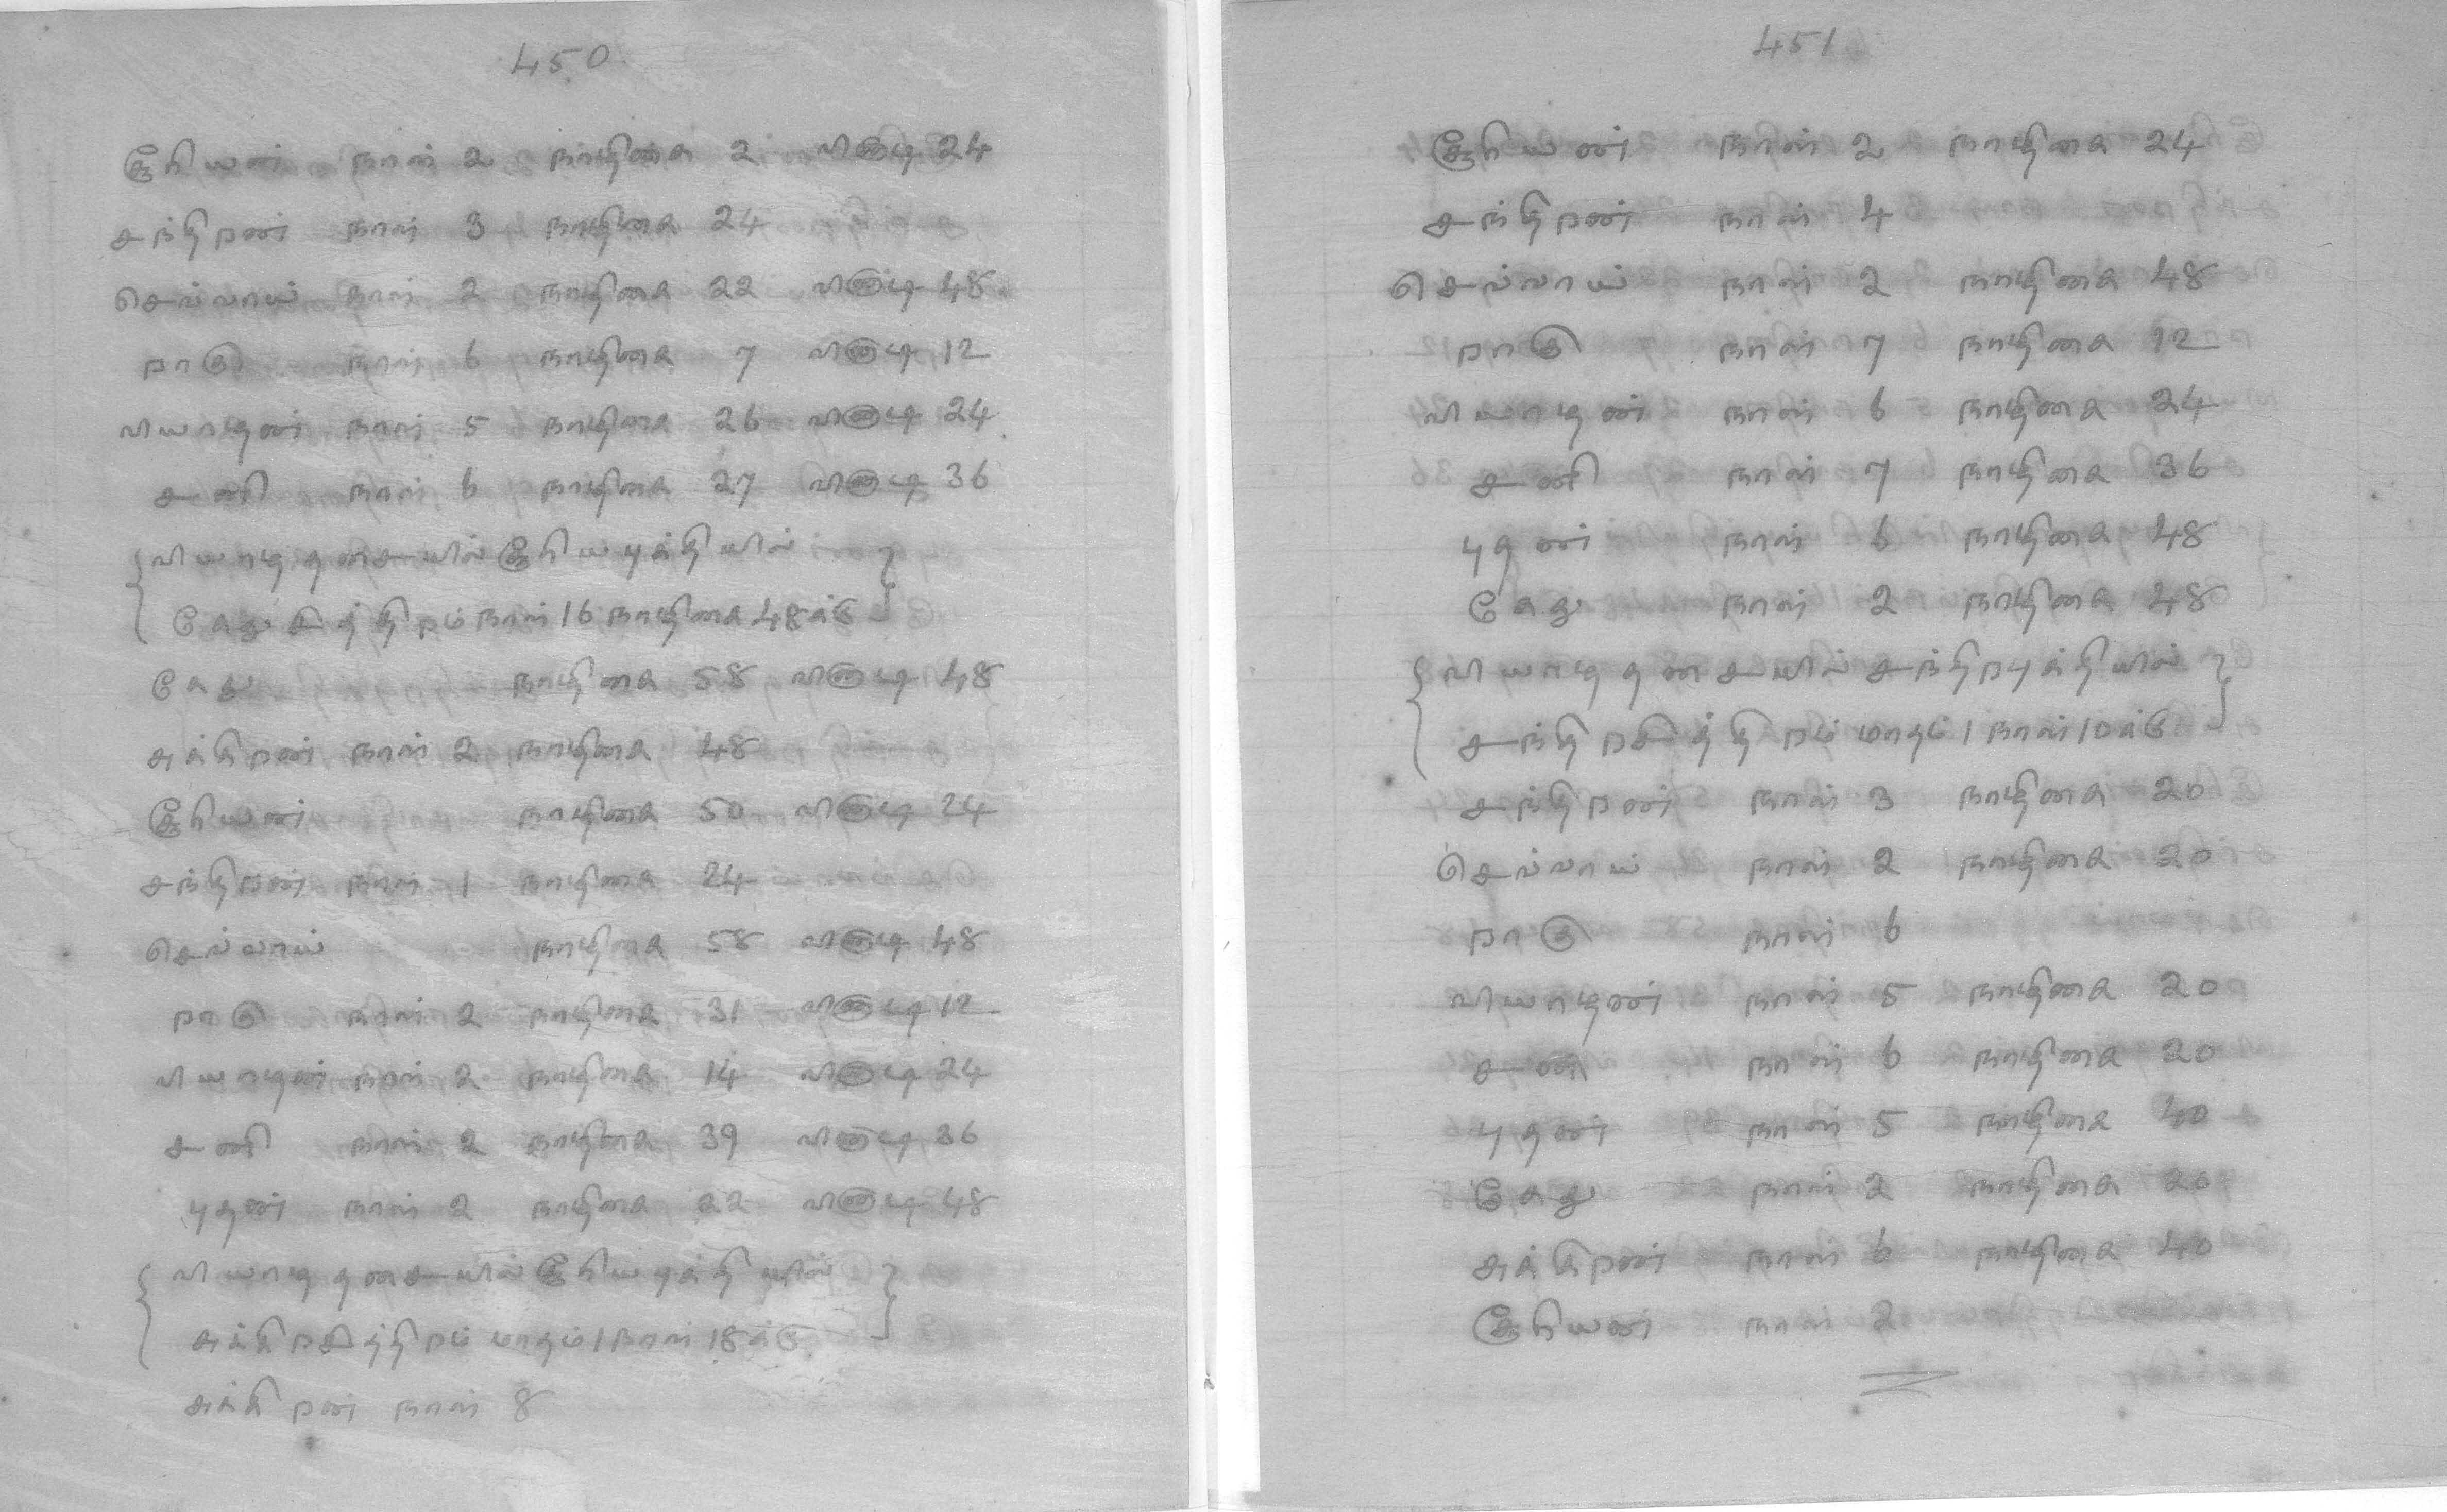 450
சூரியன் நாள் 2 நாழிகை 2 விநாடி 24
சந்திரன் நாள் 3 நாழிகை 24
செவ்வாய் நாள் 2 நாழிகை 22 விநாடி 48
ராகு நாள் 6 நாழிகை 7 விநாடி 12
வியாழன் நாள் 5 நாழிகை 26 விநாடி 24
சனி நாள் 6 நாழிகை 27 விநாடி 36
வியாழ தசையில் சூரிய புத்தியில்
கேது சித்திரம் நாள் 16 நாழிகை 48க்கு
கேது நாழிகை 58 விநாடி 48
சுக்கிரன் நாள் 2 நாழிகை 48
சூரியன் நாழிகை 50 விநாடி 24
சந்திரன் நாள் 1 நாழிகை 24
செவ்வாய் நாழிகை 58 விநாடி 48
ராகு நாள் 2 நாழிகை 31 விநாடி 12
வியாழன் நாள் 2 நாழிகை 14 விநாடி 24
சனி நாள் 2 நாழிகை 39 விநாடி 36
புதன் நாள் 2 நாழிகை 22 விநாடி 48
வியாழ தசையில் சூரிய புத்தியில்
சுக்கிர சித்திரம் மாதம் 1 நாள் 18க்கு
சுக்கிரன் நாள் 8
451
சூரியன் நாள் 2 நாழிகை 24
சந்திரன் நாள் 4
செவ்வாய் நாள் 2 நாழிகை 48
ராகு நாள் 7 நாழிகை 12
வியாழன் நாள் 6 நாழிகை 24
சனி நாள் 7 நாழிகை 36
புதன் நாள் 6 நாழிகை 48
கேது நாள் 2 நாழிகை 48
வியாழ தசையில் சந்திர புத்தியில்
சந்திர சித்திரம் மாதம் 1 நாள் 10க்கு
சந்திரன் நாள் 3 நாழிகை 20
செவ்வாய் நாள் 2 நாழிகை 20
ராகு நாள் 6
வியாழன் நாள் 5 நாழிகை 20
சனி நாள் 6 நாழிகை 20
புதன் நாள் 5 நாழிகை 40
கேது நாள் 2 நாழிகை 20
சுக்கிரன் நாள் 6 நாழிகை 40
சூரியன் நாள் 2